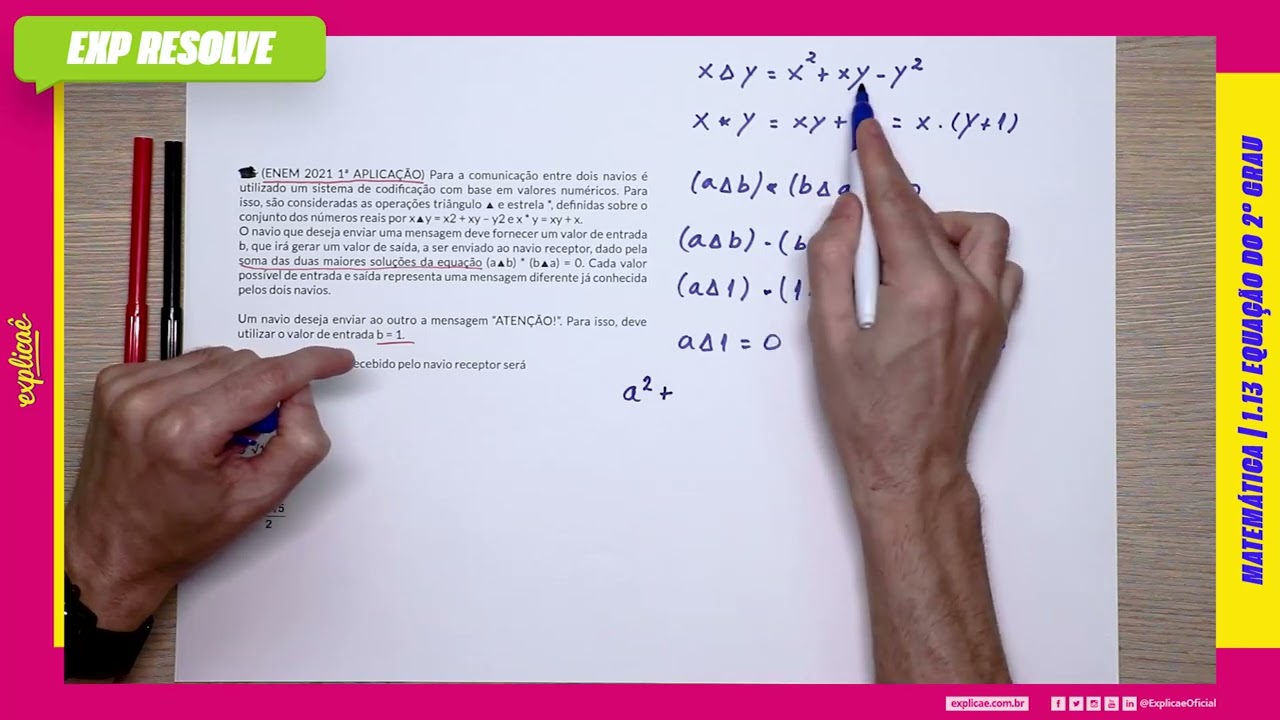 EXP RESOLVE
x Δ y = x² + xy - y²
x * y = xy + = x . (y+1)
(ENEM 2021 1ª APLICAÇÃO) Para a comunicação entre dois navios é
utilizado um sistema de codificação com base em valores numéricos. Para
isso, são consideradas as operações triângulo ▲ e estrela *, definidas sobre o
conjunto dos números reais por x▲y = x2 + xy – y2 e x * y = xy + x.
O navio que deseja enviar uma mensagem deve fornecer um valor de entrada
b, que irá gerar um valor de saída, a ser enviado ao navio receptor, dado pela
soma das duas maiores soluções da equação (a▲b) * (b▲a) = 0. Cada valor
possível de entrada e saída representa uma mensagem diferente já conhecida
pelos dois navios.
Um navio deseja enviar ao outro a mensagem "ATENÇÃO!". Para isso, deve
utilizar o valor de entrada b = 1.
ecebido pelo navio receptor será
(a Δ b) * (b Δ a
(a Δ b) . (b
(a Δ 1) . (1
a Δ 1 = 0
a² +
2
explicaê
MATEMÁTICA | 1.13 EQUAÇÃO DO 2º GRAU
explicae.com.br
@ExplicaeOficial